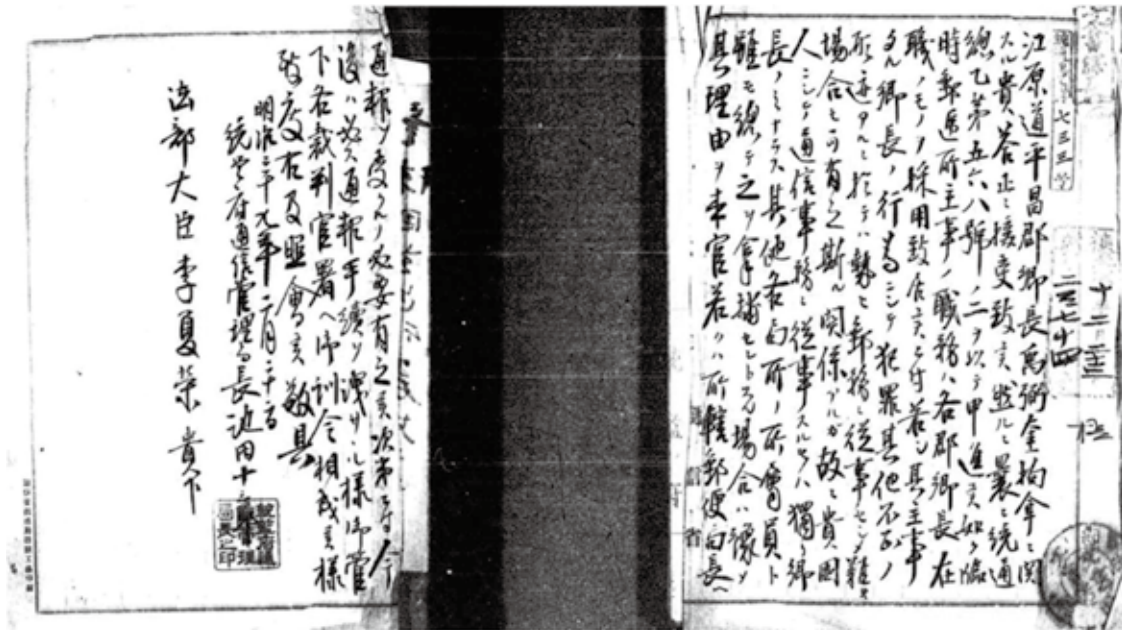 江原道平昌郡鄕長馬弼奎拘拿ニ関
スル貴答正ニ接受致候然ルニ曩ニ統通
總乙第五六八號ノ二ヲ以テ申進候如ク臨
時郵逓所主事ノ職務ハ各郡鄕長在
職ノモノヲ採用致居候ニ付若シ其主事
タル鄕長ノ行為ニシテ犯罪其他不正ノ
形迹アルニ於テハ勢ヒ郵務ニ従事セシメ難キ
場合モ可有之斯ル関係アルガ故ニ貴国
人ニシテ通信事務ニ従事スルモノハ獨リ鄕
長ノミナラス其他各局所ノ所属員ト
雖モ總テ之ヲ拿捕セントスル場合ハ豫メ
其理由ヲ本官若クハ所轄郵便局長ヘ
通報ヲ受クルノ必要有之候次第ニ付今
後ハ必ス通報手續ヲ洩ササル様御管
下各裁判官署ヘ御訓令相成候様
致度右及照會候敬具
明治三十九年二月二十日
統監府通信管理局長池田十
法部大臣李夏榮貴下
七三三号